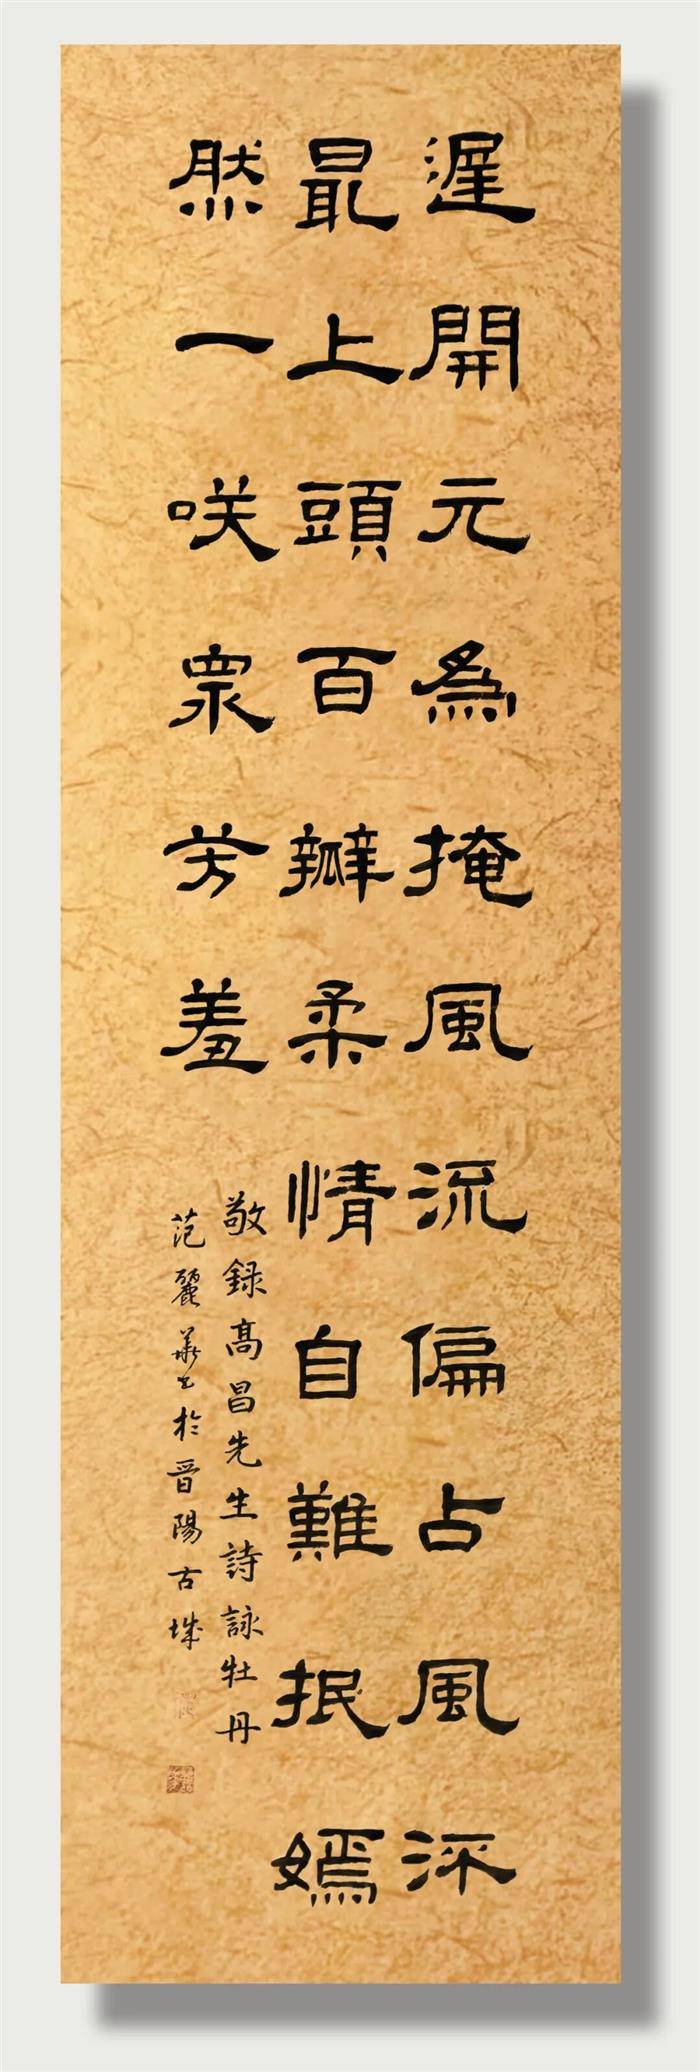 遲開元為掩風流偏占風流
最上頭百瓣柔情自難抿嫣
然一咲眾芳羞
敬録高昌先生詩詠牡丹
范麗華書於晉陽古城